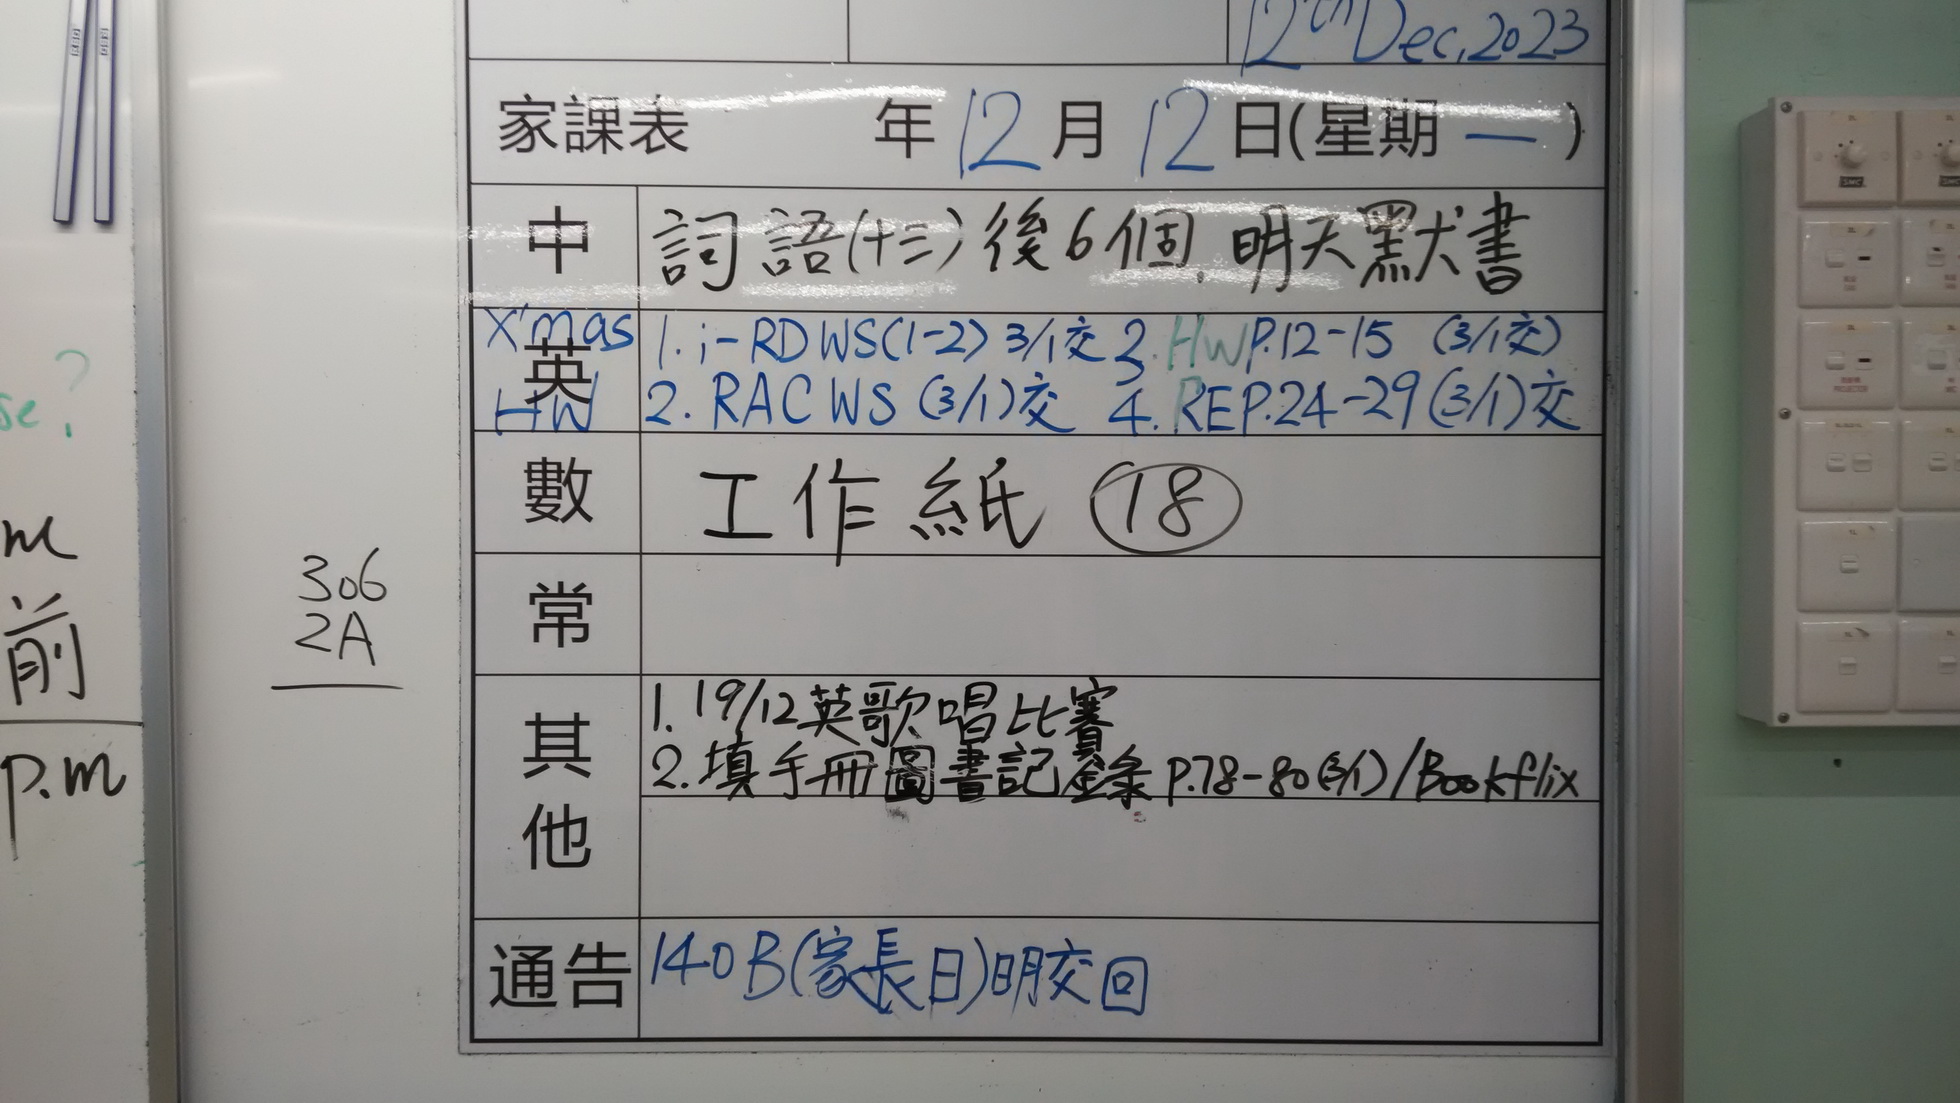 12th Dec, 2023
家課表 年 12 月 12 日(星期 一 )
中 詞語(十三)後6個, 明天默書
X'mas HW
英
1. i-RD WS(1-2) 3/1交 3. HW P.12-15 (3/1交)
2. RAC WS (3/1)交 4. RE P.24-29 (3/1)交
數 工作紙 18
常
其他
1. 19/12英歌唱比賽
2. 填手冊圖書記錄 P.78-80(3/1)/Bookflix
通告 140B(家長日)明交回
306
2A
se?
m
前
p.m